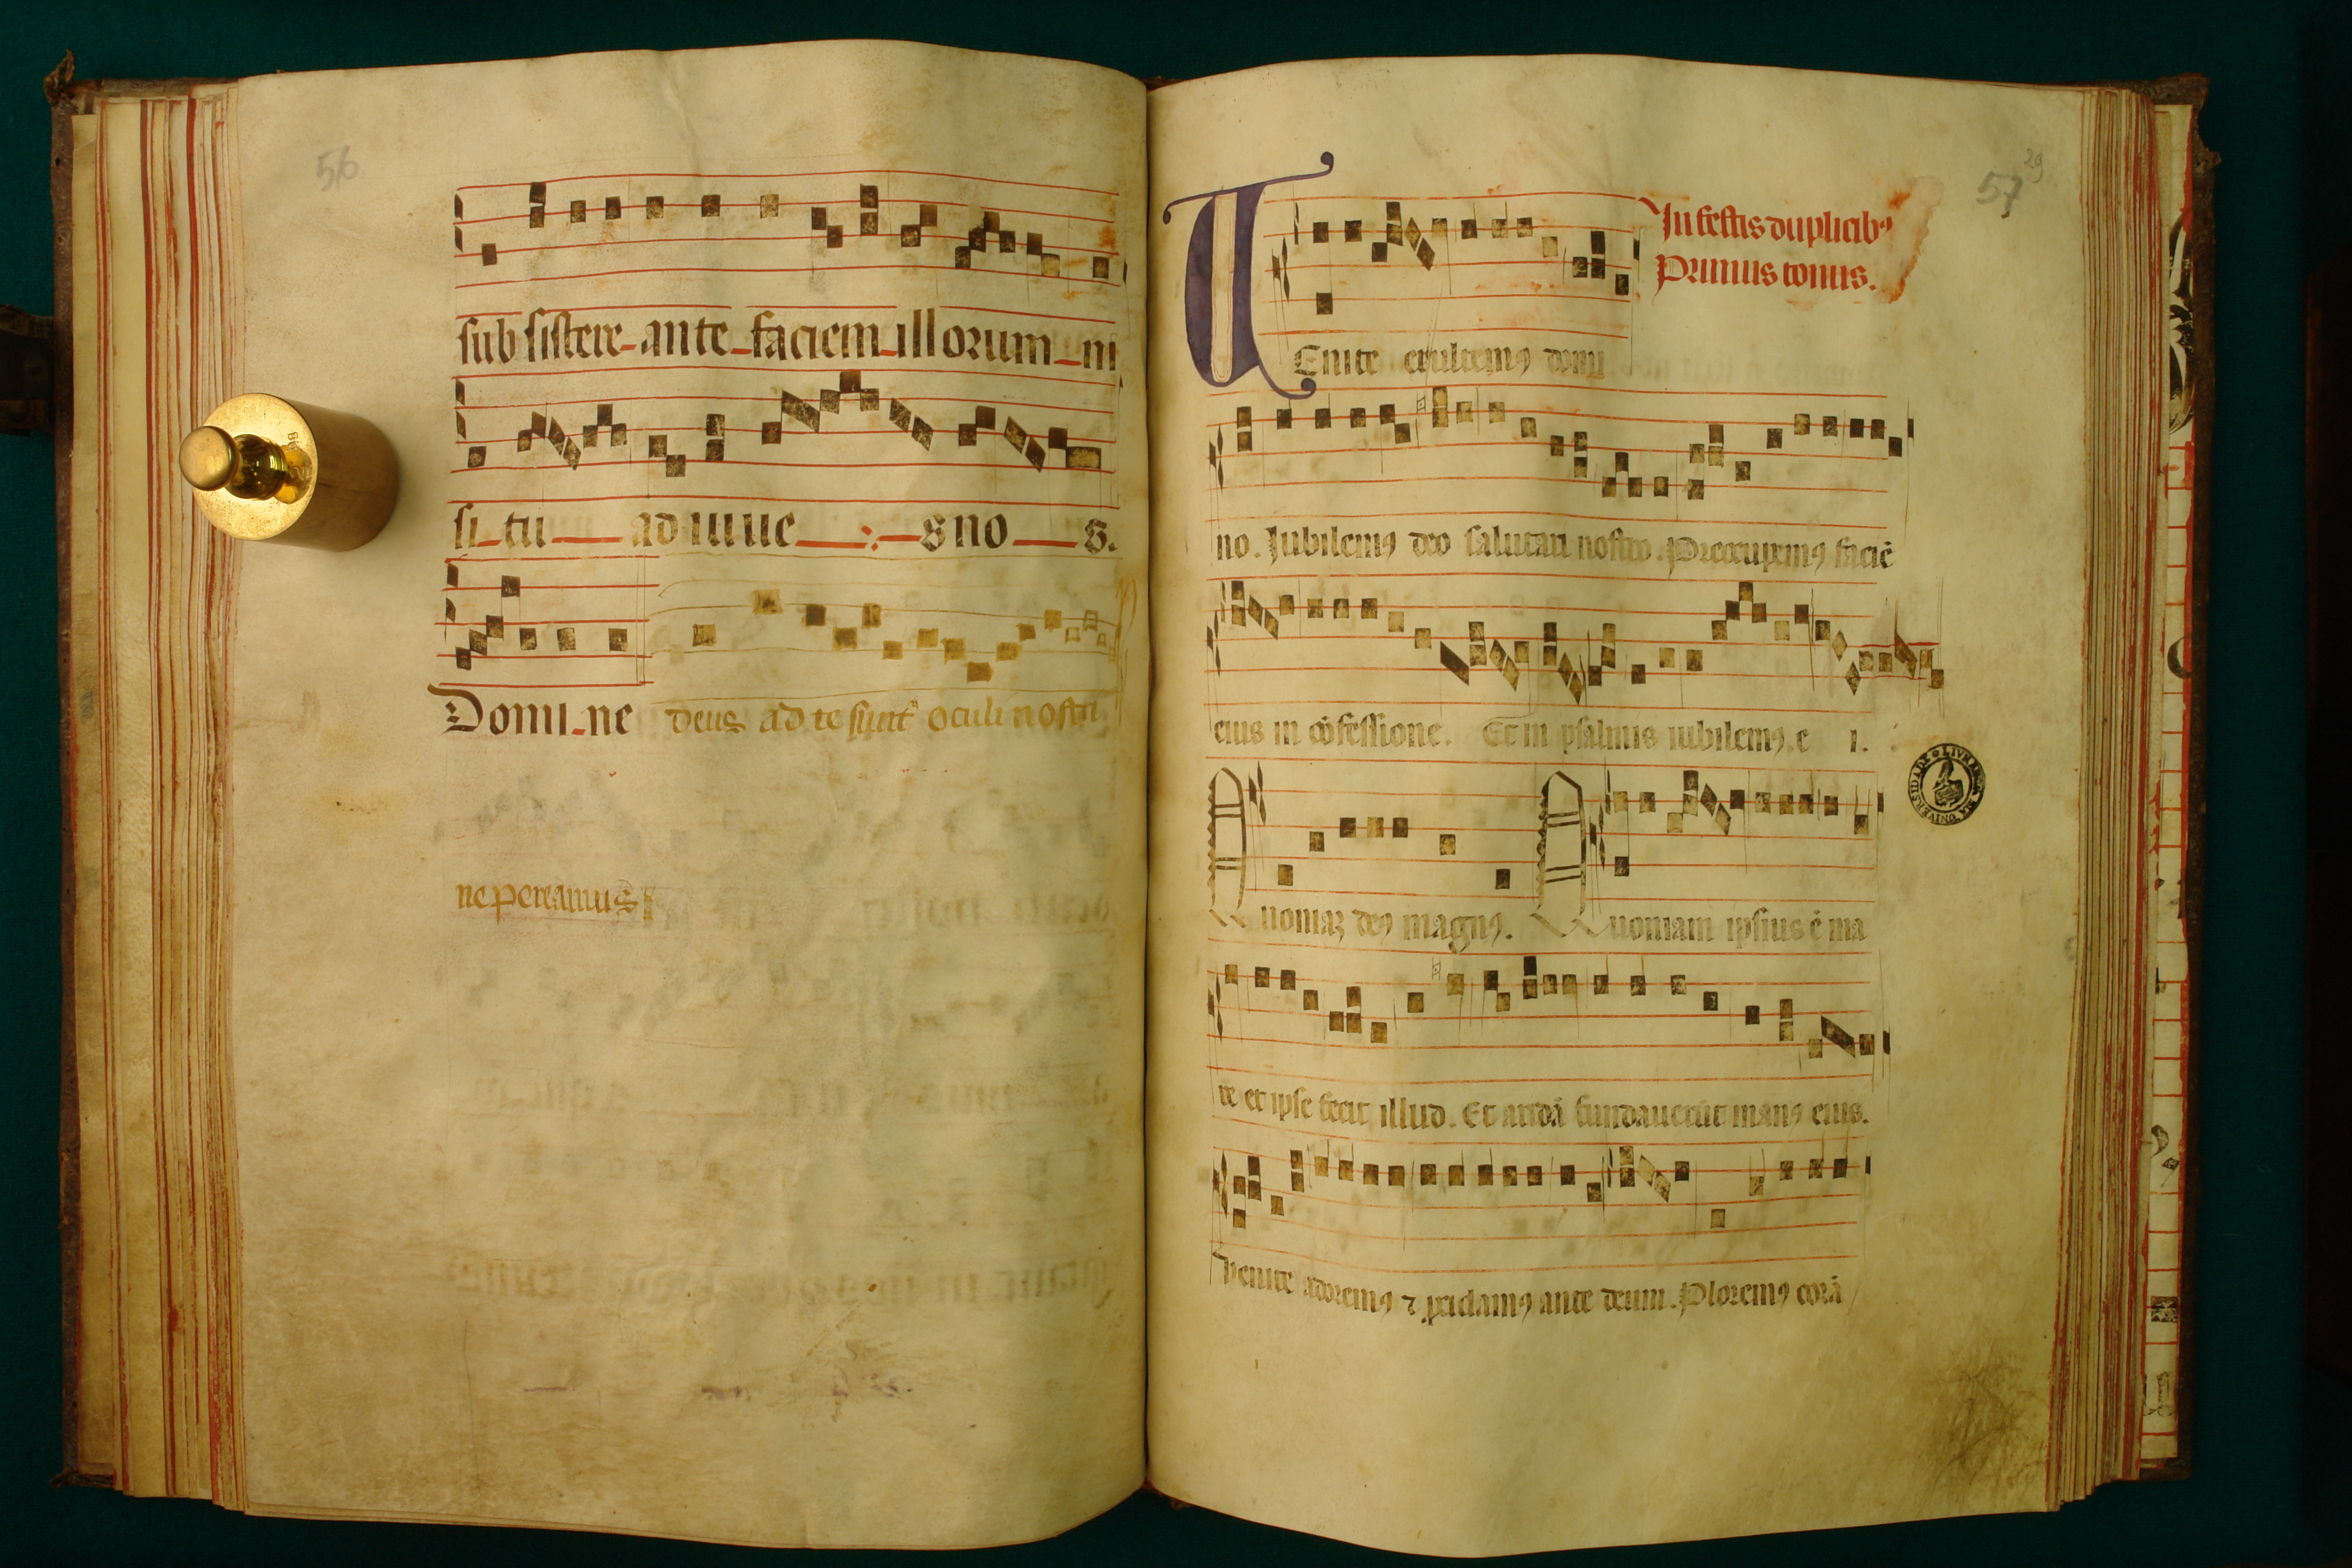 56
sub sistere ante faciem illorum ni
si tu adiuue s no s.
Domi ne deus ad te sunt oculi nostri
ne pereamus
57
29
In festis duplicibꝰ
Primus tonus.
VEnite exultemꝰ domi
no. Jubilemꝰ deo salutari nostro. Preocupemꝰ faciē
eius in cōfessione. Et in psalmis iubilemꝰ e i.
Quoniaꝫ deꝰ magnꝰ. Quoniam ipsius ē ma
re et ipse fecit illud. Et aridā fundauerūt manꝰ eius.
Venite adoremꝰ ⁊ ꝓcidamꝰ ante deum. Ploremꝰ corā